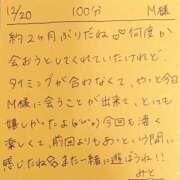 12/20 100分 M様
約2ヶ月ぶりだね♡♡何度か
会おうとしてくれていたけれど、
タイミングが合わなくて、やっと今日
M様に会うことが出来て、とっても
嬉しかったよ♡♡今回も凄く
楽しくて、前回よりもあっという間に
感じたねまた一緒に遊ぼうね!!
みと